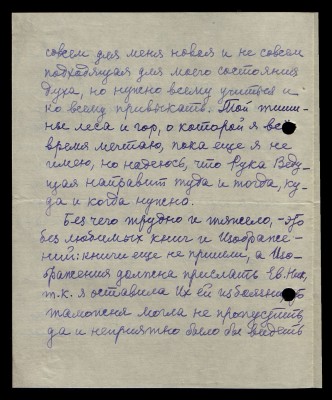 совсем для меня новая и не совсем
подходящая для моего состояния
духа, но нужно всему учиться и
ко всему привыкать. Той тиши-
ны леса и гор, о которой я все
время мечтаю, пока еще я не
имею, но надеюсь, что Рука Веду-
щая направит туда и тогда, ку-
да и когда нужно.
Без чего трудно и тяжело, - это
без любимых книг и Изображе-
ний: книги еще не пришли, а Изо-
бражения должна прислать Ев. Ник,
т.к. я оставила Их ей из боязни,
таможня могла не пропустить
да и неприятно было бы видеть